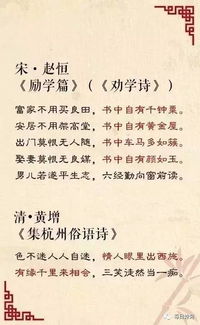 宋·赵恒
《励学篇》(《劝学诗》)
富家不用买良田,书中自有千钟粟。
安居不用架高堂,书中自有黄金屋。
出门莫恨无人随,书中车马多如簇。
娶妻莫恨无良媒,书中自有颜如玉。
男儿若遂平生志,六经勤向窗前读。
清·黄增
《集杭州俗语诗》
色不迷人人自迷,情人眼里出西施。
有缘千里来相会,三笑徒然当一痴。